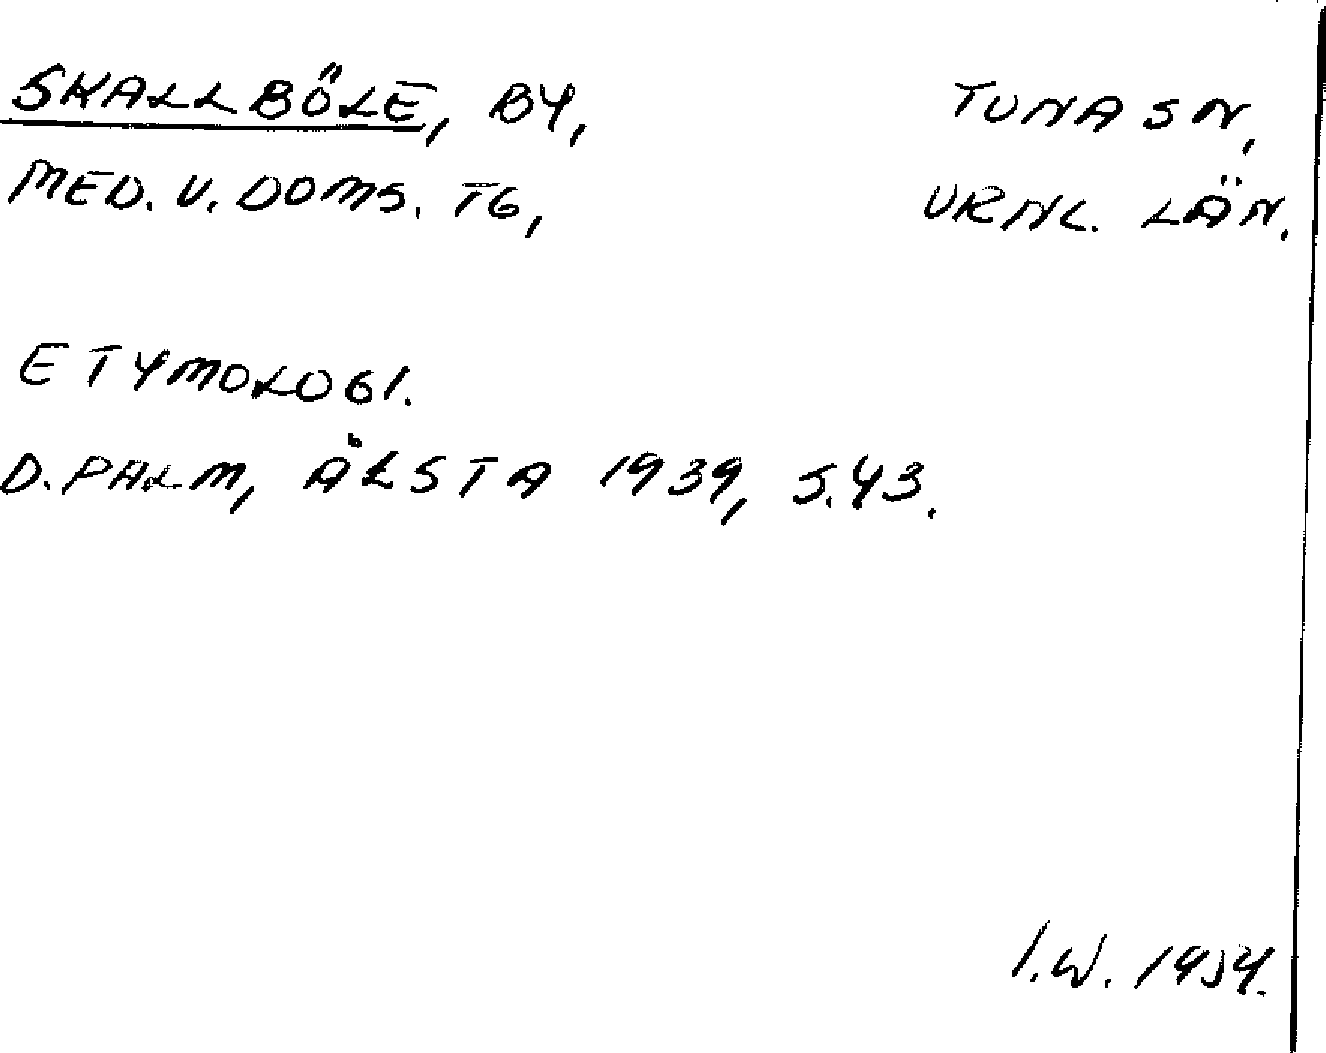 SKALLBÖLE, BY, TUNA SN,
MED. V. DOMS. TG, VRNL. LÄN.
ETYMOLOGI.
D. PALM, ÄLSTA 1939, S. 43.
I.W. 1954.